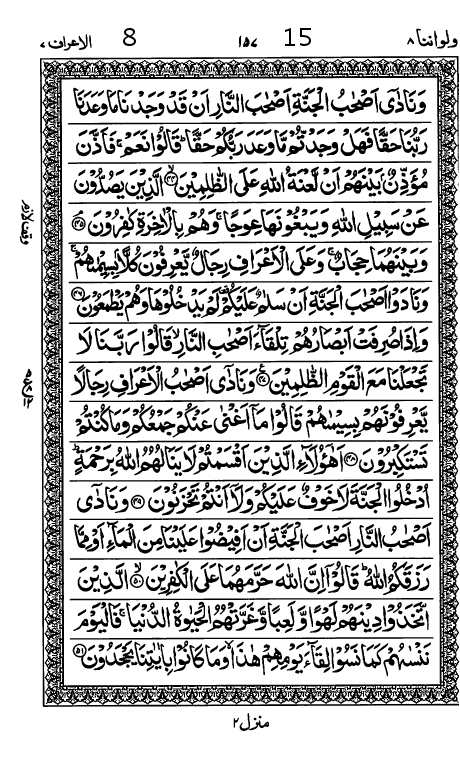 ولواننا ٨ 15 ١٥٧ 8 الاعراف ٧
وَنَادٰۤى اَصْحٰبُ الْجَنَّةِ اَصْحٰبَ النَّارِ اَنْ قَدْ وَجَدْنَا مَا وَعَدَنَا
رَبُّنَا حَقًّا فَهَلْ وَجَدْتُّمْ مَّا وَعَدَ رَبُّكُمْ حَقًّا ؕ قَالُوْا نَعَمْ ۚ فَاَذَّنَ
مُؤَذِّنٌۢ بَيْنَهُمْ اَنْ لَّعْنَةُ اللّٰهِ عَلَى الظّٰلِمِيْنَ ۙ﴿۴۴﴾ الَّذِيْنَ يَصُدُّوْنَ
عَنْ سَبِيْلِ اللّٰهِ وَيَبْغُوْنَهَا عِوَجًا ۚ وَهُمْ بِالْاٰخِرَةِ كٰفِرُوْنَ ۘ﴿۴۵﴾
وَبَيْنَهُمَا حِجَابٌ ۚ وَعَلَى الْاَعْرَافِ رِجَالٌ يَّعْرِفُوْنَ كُلًّاۢ بِسِيْمٰىهُمْ ۚ
وَنَادَوْا اَصْحٰبَ الْجَنَّةِ اَنْ سَلٰمٌ عَلَيْكُمْ ۟ لَمْ يَدْخُلُوْهَا وَهُمْ يَطْمَعُوْنَ ﴿۴۶﴾
وَاِذَا صُرِفَتْ اَبْصَارُهُمْ تِلْقَآءَ اَصْحٰبِ النَّارِ ۙ قَالُوْا رَبَّنَا لَا
تَجْعَلْنَا مَعَ الْقَوْمِ الظّٰلِمِيْنَ ﴿۴۷﴾ وَنَادٰۤى اَصْحٰبُ الْاَعْرَافِ رِجَالًا
يَّعْرِفُوْنَهُمْ بِسِيْمٰىهُمْ قَالُوْا مَاۤ اَغْنٰى عَنْكُمْ جَمْعُكُمْ وَمَا كُنْتُمْ
تَسْتَكْبِرُوْنَ ﴿۴۸﴾ اَهٰۤؤُلَآءِ الَّذِيْنَ اَقْسَمْتُمْ لَا يَنَالُهُمُ اللّٰهُ بِرَحْمَةٍ ؕ
اُدْخُلُوا الْجَنَّةَ لَا خَوْفٌ عَلَيْكُمْ وَلَاۤ اَنْتُمْ تَحْزَنُوْنَ ﴿۴۹﴾ وَنَادٰۤى
اَصْحٰبُ النَّارِ اَصْحٰبَ الْجَنَّةِ اَنْ اَفِيْضُوْا عَلَيْنَا مِنَ الْمَآءِ اَوْ مِمَّا
رَزَقَكُمُ اللّٰهُ ؕ قَالُوْۤا اِنَّ اللّٰهَ حَرَّمَهُمَا عَلَى الْكٰفِرِيْنَ ۙ﴿۵۰﴾ الَّذِيْنَ
اتَّخَذُوْا دِيْنَهُمْ لَهْوًا وَّلَعِبًا وَّغَرَّتْهُمُ الْحَيٰوةُ الدُّنْيَا ۚ فَالْيَوْمَ
نَنْسٰىهُمْ كَمَا نَسُوْا لِقَآءَ يَوْمِهِمْ هٰذَا ۙ وَمَا كَانُوْا بِاٰيٰتِنَا يَجْحَدُوْنَ ﴿۵۱﴾
وقف لازم
منزل ٢